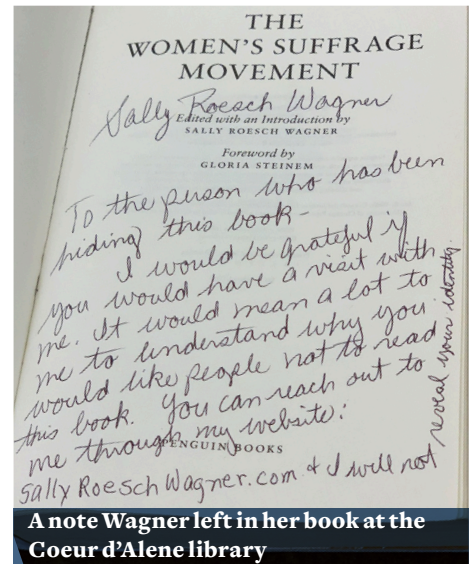 THE
WOMEN'S SUFFRAGE
MOVEMENT
Sally Roesch Wagner
Edited with an Introduction by
SALLY ROESCH WAGNER
Foreword by
GLORIA STEINEM
To the person who has been
hiding this book–
I would be grateful if
you would have a visit with
me. It would mean a lot to
me to understand why you
would like people not to read
this book. You can reach out to
me through my website:
PENGUIN BOOKS
SallyRoeschWagner.com & I will not
reveal your identity.
A note Wagner left in her book at the
Coeur d'Alene library